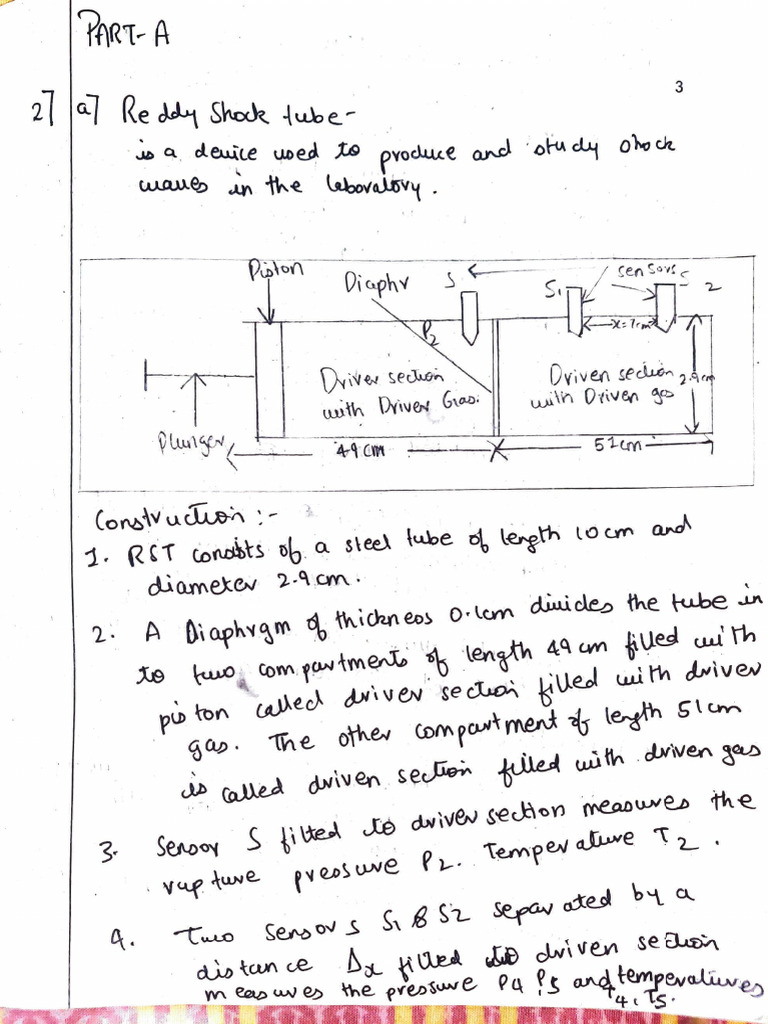 PART-A
3
2] a] Reddy Shock tube-
is a device used to produce and study shock
waves in the laboratory.
Piston
Diaphr
S
sensors
S1
S 2
P2
x=7cm
Driver section
with Driver Gas.
Driven section
with Driven gas
2.9cm
Plunger
49cm
51cm
Construction :-
1. RST consists of a steel tube of length 10cm and
diameter 2.9cm.
2. A Diaphrgm of thickness 0.1cm divides the tube in
to two compartments of length 49cm filled with
piston called driver section filled with driver
gas. The other compartment of length 51cm
is called driven section filled with driven gas
3. Sensor S fitted to driver section measures the
rupture pressure P2. Temperature T2.
4. Two sensors S1 & S2 separated by a
distance Δx fitted to driven section
measures the pressure P4 P5 and temperatures
T4, T5.